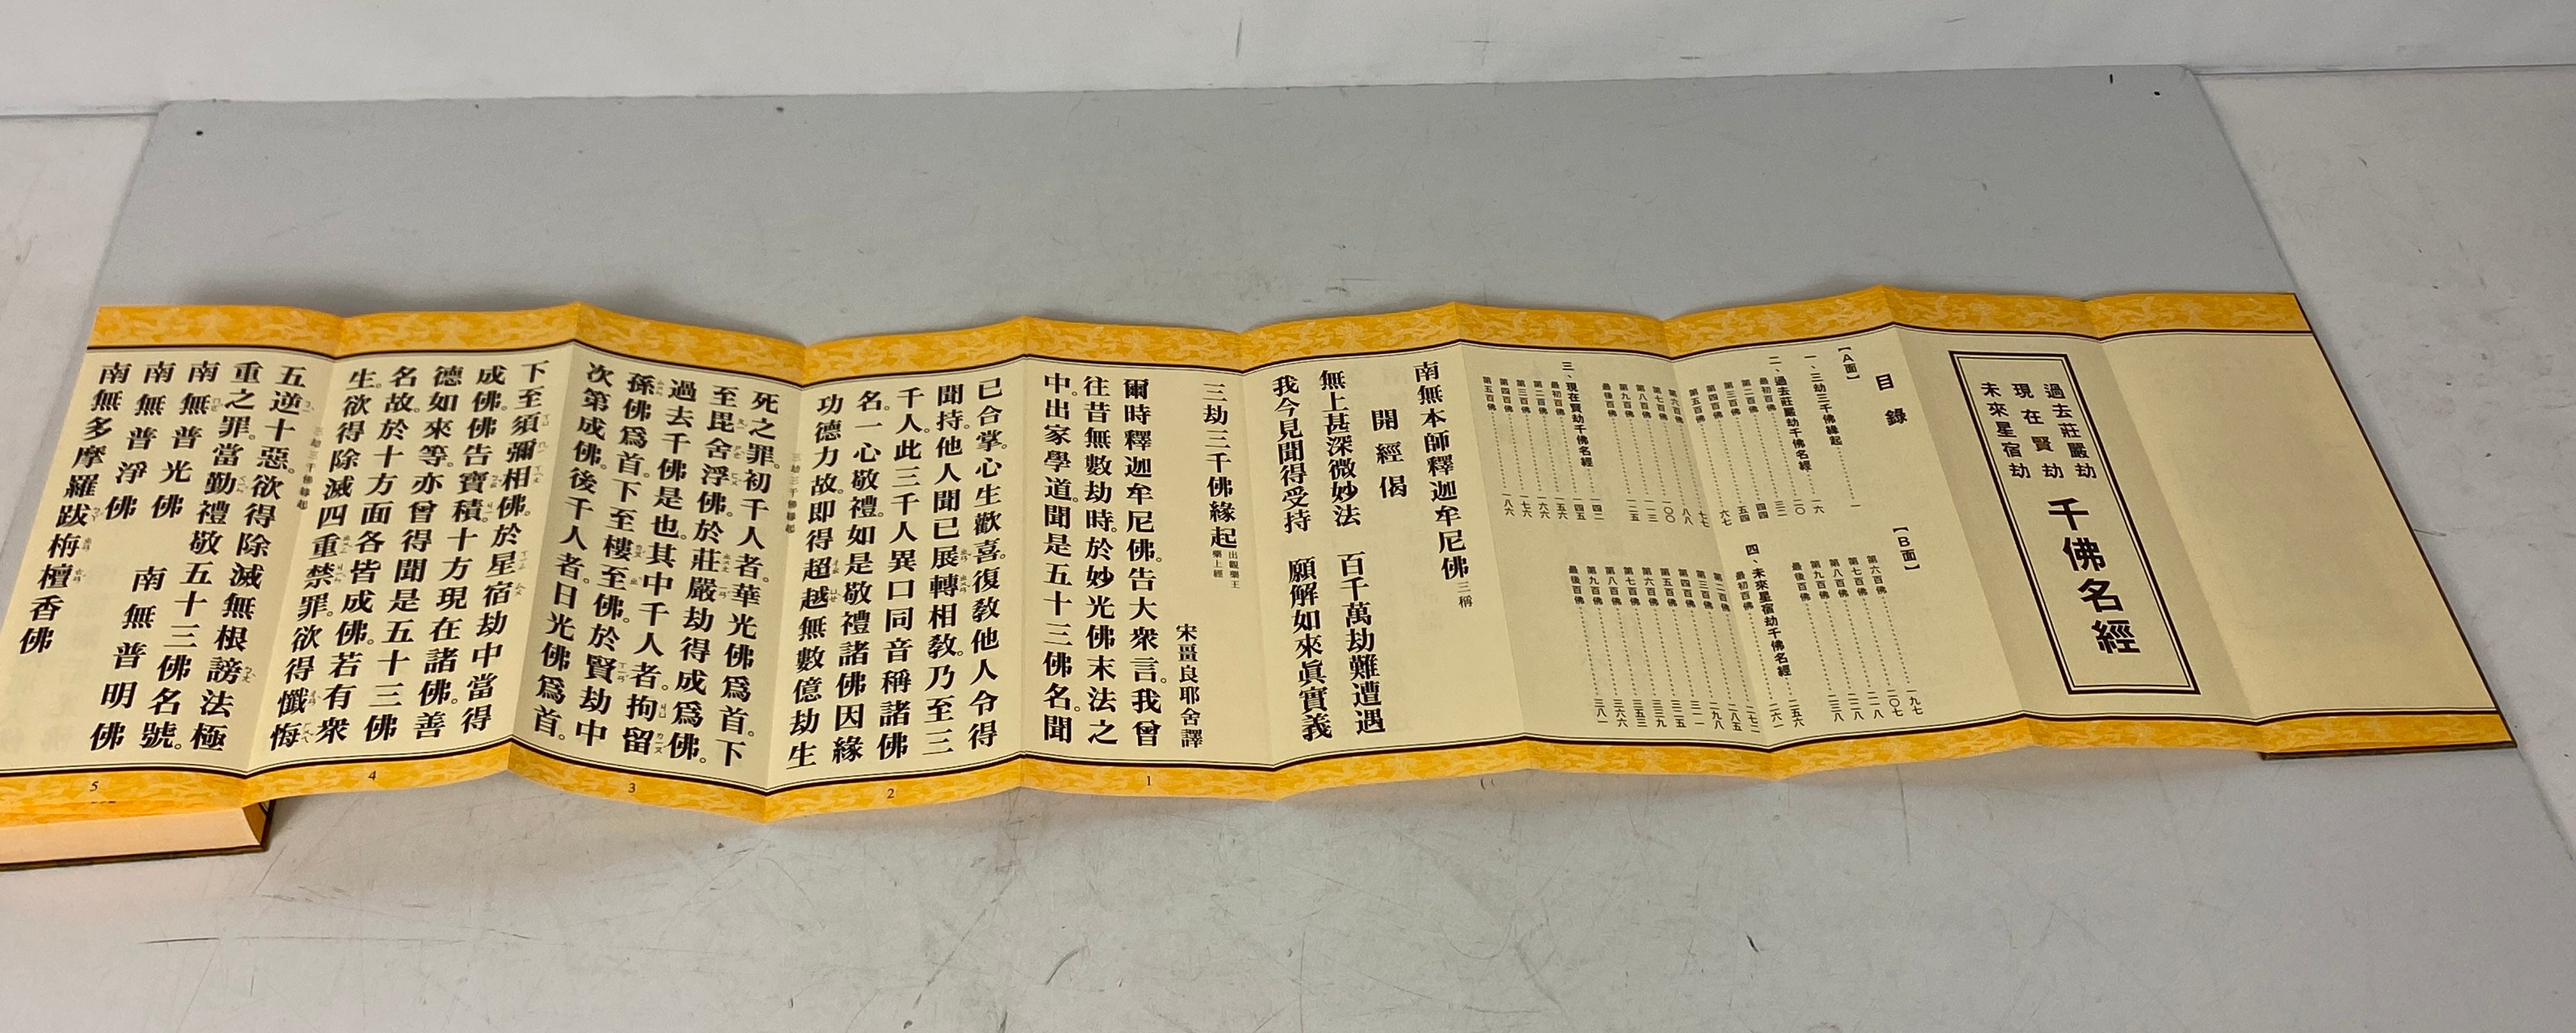 過去莊嚴劫
現在賢劫
未來星宿劫
千佛名經
目錄
【A面】
一、三劫三千佛緣起……一
二、過去莊嚴劫千佛名經……一六
最初百佛……二〇
第二百佛……三二
第三百佛……四四
第四百佛……五四
第五百佛……六七
第六百佛……七七
第七百佛……八八
第八百佛……一〇〇
第九百佛……一一三
最後百佛……一二五
三、現在賢劫千佛名經……一四二
最初百佛……一四五
第二百佛……一五六
第三百佛……一六六
第四百佛……一七六
第五百佛……一八六
【B面】
第六百佛……一九七
第七百佛……二〇七
第八百佛……二一八
第九百佛……二二八
最後百佛……二三八
四、未來星宿劫千佛名經……二五六
最初百佛……二六一
第二百佛……二七二
第三百佛……二八五
第四百佛……二九八
第五百佛……三一一
第六百佛……三二五
第七百佛……三三九
第八百佛……三五三
第九百佛……三六六
最後百佛……三八一
南無本師釋迦牟尼佛三稱
開經偈
無上甚深微妙法 百千萬劫難遭遇
我今見聞得受持 願解如來眞實義
三劫三千佛緣起出觀藥王藥上經
宋畺良耶舍譯
爾時釋迦牟尼佛。告大衆言。我曾
往昔無數劫時。於妙光佛末法之
中。出家學道。聞是五十三佛名。聞
1
已合掌。心生歡喜。復敎他人令得
聞持。他人聞已展轉相敎。乃至三
千人。此三千人異口同音稱諸佛
名。一心敬禮。如是敬禮諸佛因緣
功德力故。即得超越無數億劫生
2
三劫三千佛緣起
死之罪。初千人者。華光佛爲首。下
至毘舍浮佛。於莊嚴劫得成爲佛。
過去千佛是也。其中千人者。拘留
孫佛爲首。下至樓至佛。於賢劫中
次第成佛。後千人者。日光佛爲首。
3
下至須彌相佛。於星宿劫中當得
成佛。佛告寶積。十方現在諸佛。善
德如來等。亦曾得聞是五十三佛
名故。於十方面各皆成佛。若有衆
生。欲得除滅四重禁罪。欲得懺悔
4
三劫三千佛緣起
五逆十惡。欲得除滅無根謗法極
重之罪。當勤禮敬五十三佛名號。
南無普光佛 南無普明佛
南無普淨佛
南無多摩羅跋栴檀香佛
5